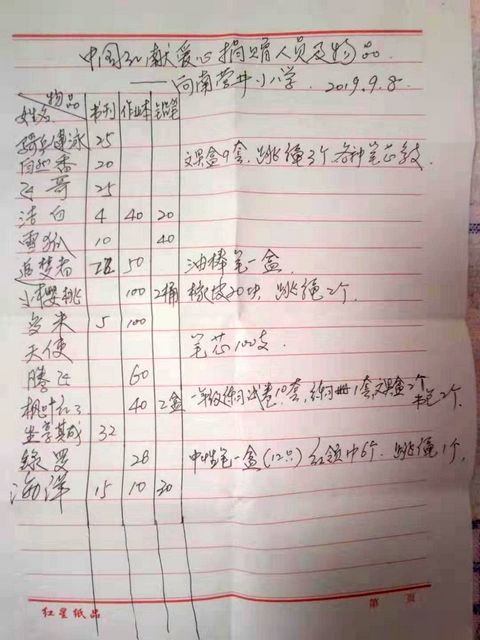 中国弘献爱心捐赠人员及物品
——向南营井小学 2019.9.8
物品
姓名 书刊 作业本 铅笔
骑车健泳 25
自然香 20 文具盒9套、跳绳3个、各种笔芯
飞哥 25
洁白 4 40 20
雪狐 10 40
追梦者 50 油棒笔一盒
小樱桃 100 2桶 橡皮20块, 跳绳2个.
多米 5 100
天使 笔芯100支.
腾飞 60
枫叶红了 40 2盒 一年级练习试卷10套, 练习册1套 文具盒2个 毛笔2个.
坐享其成 32
绿罗 28 中性笔一盒(12只) 红领巾6个. 跳绳1个.
海洋 15 10 30
红星纸品 第 页